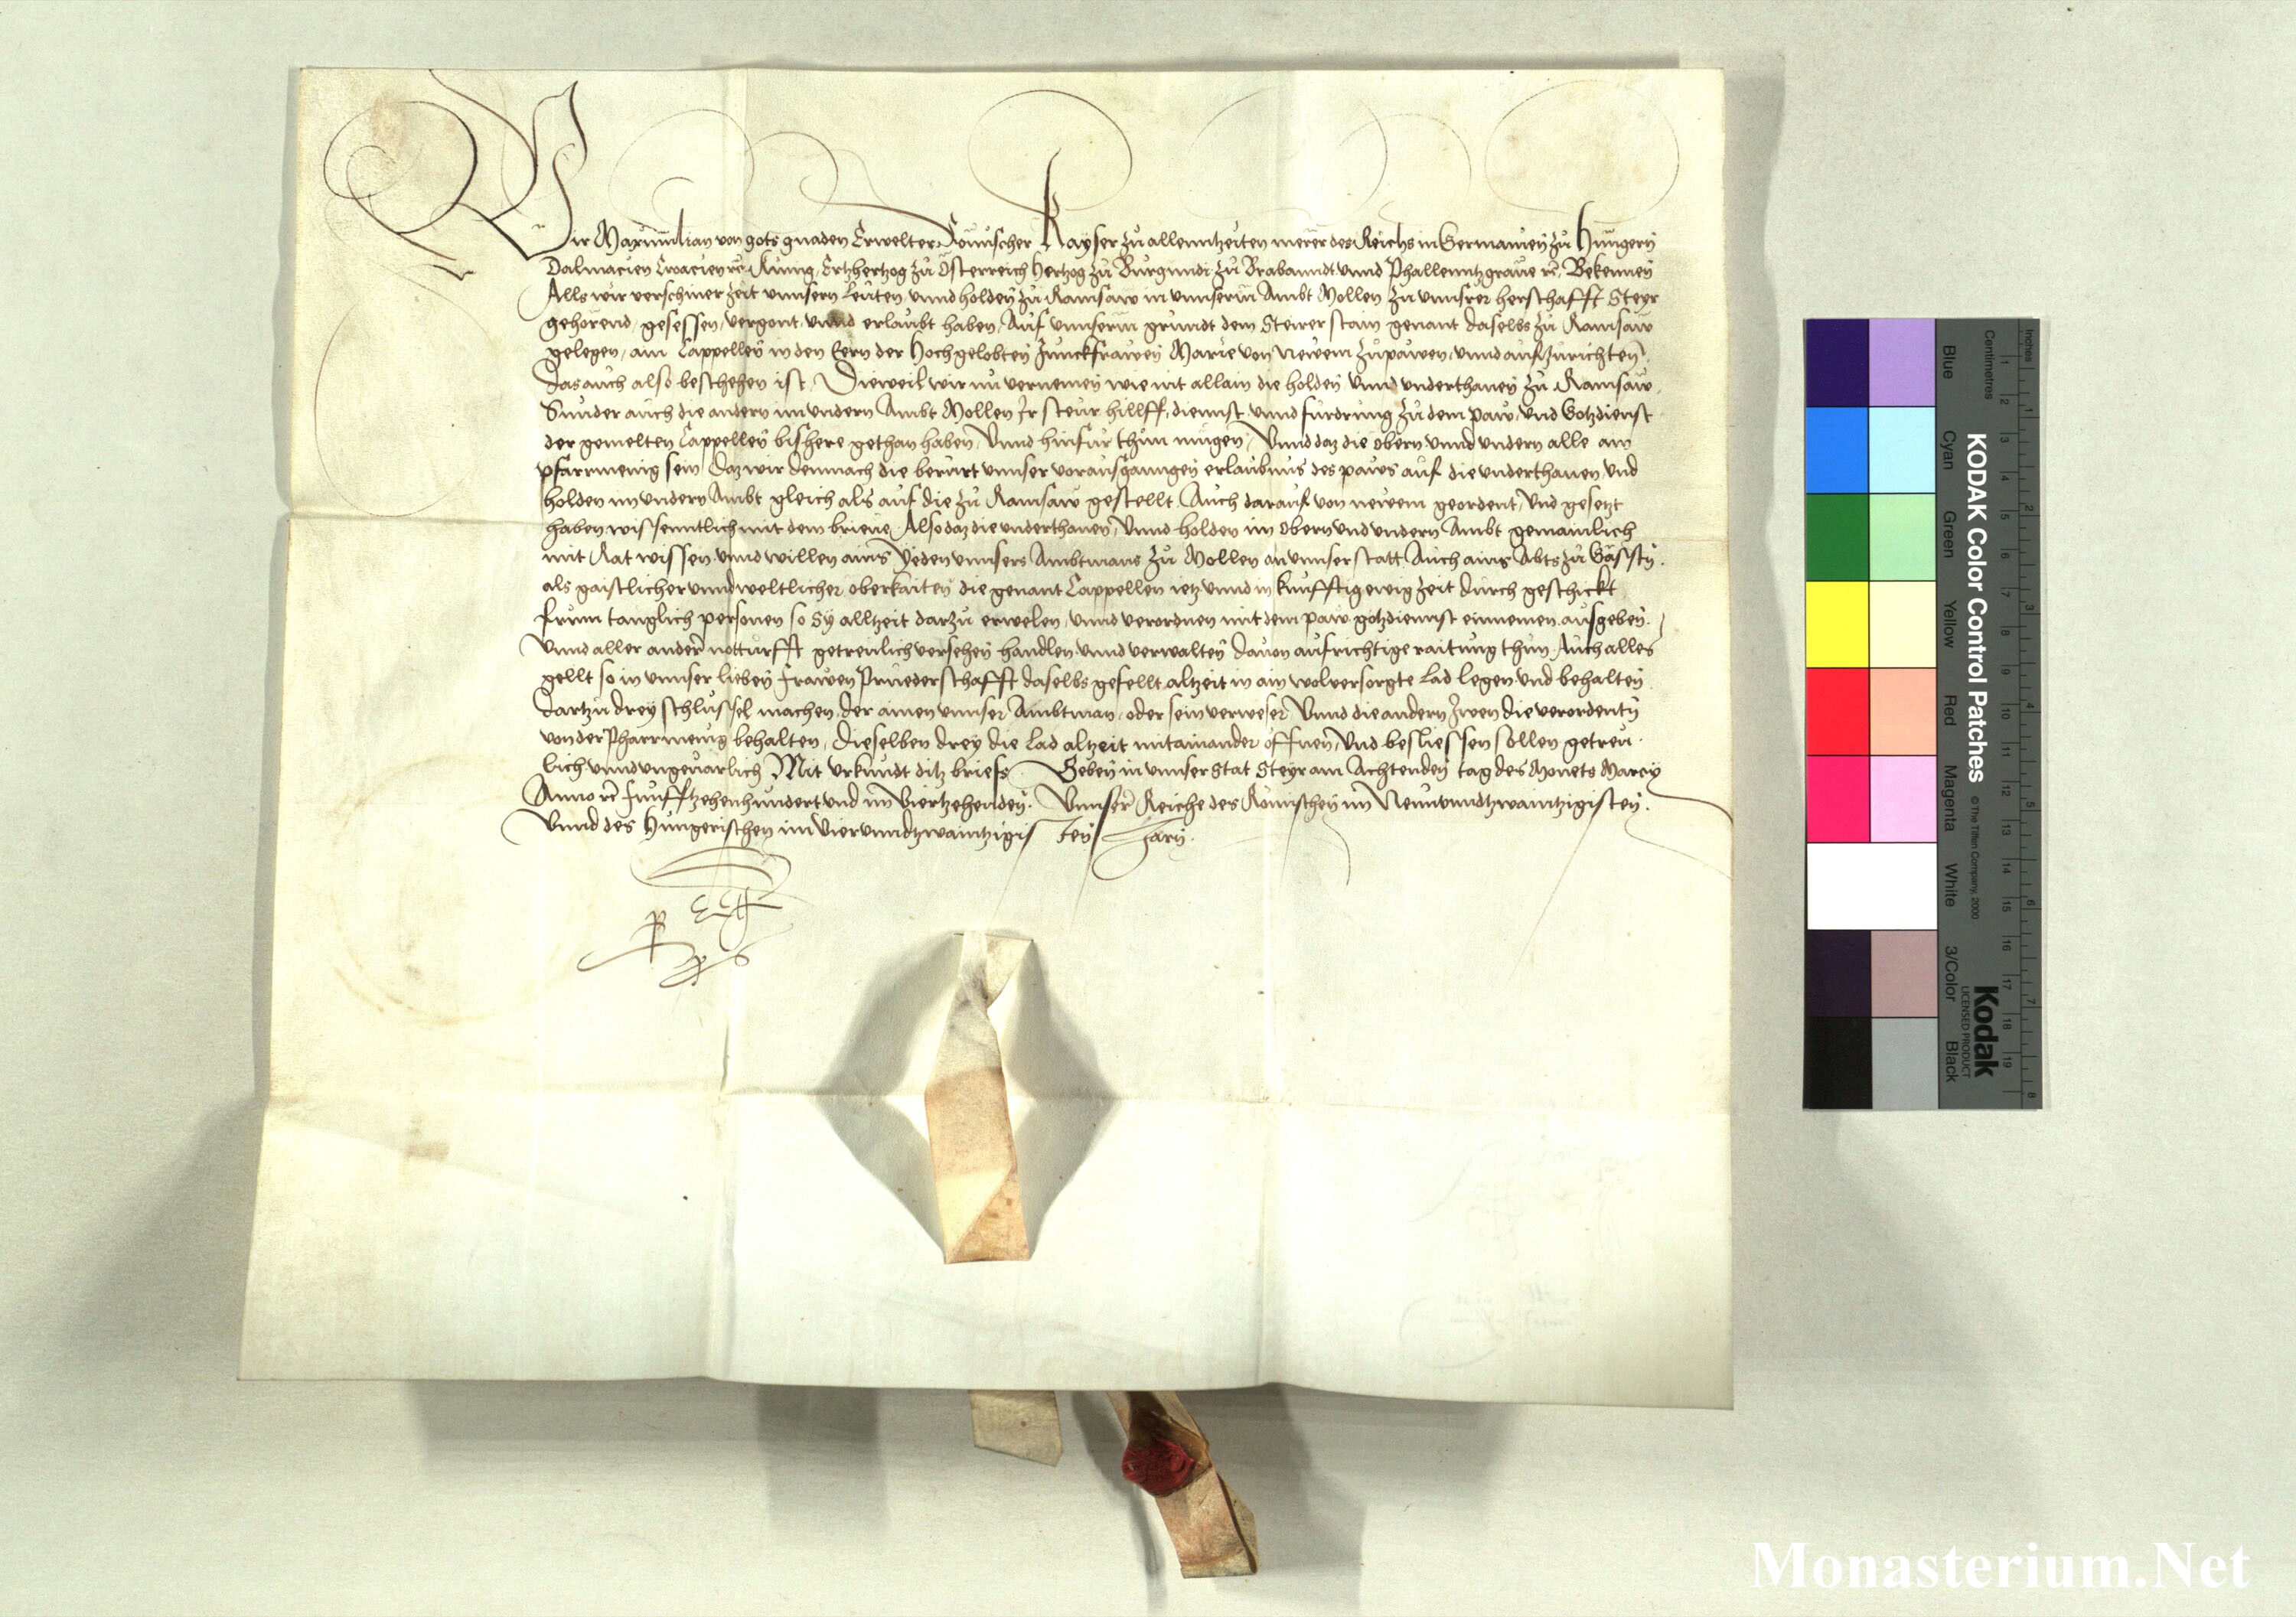 Wir Maximilian von gots gnaden Erwelter Römischer Kayser zu allenntzeiten merer des Reichs in Germanien zu Hungern
Dalmacien Croacien rc̃ Kunig, Ertzhertzog zu Österreich Hertzog zu Burgundi zu Brabanndt unnd Phallenntzgraue rc̃, Bekennen
Alls wir verschiner zeit unnsern leuten unnd holden zu Ramsaw in unnserm Ambt Mollen zu unnsrer herschafft Steyr
gehörend, gesessen, vergont, unnd erlaubt haben, Auf unnserm grundt dem Steirer stain genant daselbs zu Ramsaw
gelegen, ain Cappellen in den Eern der Hochgelobten Junckfrawen Marie von newem zupawen, unnd aufzurichten,
das auch also beschehen ist, Dieweil wir nu vernemen wie nit allain die holden unnd underthanen zu Ramsaw,
Sunder auch die andern im undern Ambt Mollen Ir steur hillff, diennst unnd furdrung zu dem paw, und Gotzdienst
der gemelten Cappellen bishere gethan haben, Unnd hinfur thun mugen, Unnd daz die obern unnd undern alle ain
pfarrmenig sein, Daz wir demnach die berurt unnser vorausganngen erlaubnus des paws auf die underthanen, und
holden im undern Ambt gleich als auf die zu Ramsaw gestellt Auch darauf von newem geordent, Und gesetzt
haben wissenntlich mit dem brieue, Also daz die underthanen, Unnd holden im obern und undern Ambt gemainlich
mit Rat wissen unnd willen ains Yeden unnsers Ambtmans zu Mollen an unnser statt Auch ains Abts zu Gärsten.
als gaistlicher unnd weltlicher oberkaiten die genant Cappellen ietz unnd in kunfftig ewig zeit durch geschickt
frum tauglich personen so Sy alltzeit darzu erwelen, unnd verordnen mit dem paw gotzdiennst einnemen ausgeben.
Unnd aller andrer notturfft getreulich versehen handlen unnd verwalten dauon aufrichtige raitung thun, Auch alles
gellt so in unnser lieben frawen Pruederschafft daselbs gefellt altzeit in ain wolversorgte Lad legen und behalten
Dartzu drey schlussel machen, der ainen unnser Ambtman, oder sein verweser Unnd die andern Zwen die verordenten
von der Pharrmenig behalten, Dieselben drey die Lad altzeit mitainander offnen, Und besliessen sollen getreu-
lich unnd ungeuarlich Mit Urkundt ditz briefs Geben in unnser Stat Steyr am Achtenden tag des Monets Marcy
Anno rc̃ funfftzehenhundert und im Viertzehenden. Unnserer Reiche des Römischen im Neununndtzwaintzigisten.
Unnd des Hungerischen im Vierunndtzwaintzigisten Jarn.
KODAK Color Control Patches
© The Tiffen Company, 2000
Kodak
LICENSED PRODUCT
Inches
Centimetres
1 2 3 4 5 6 7 8 9 10 11 12 13 14 15 16 17 18 19
1 2 3 4 5 6 7 8
Blue Cyan Green Yellow Red Magenta White 3/Color Black
Monasterium.Net